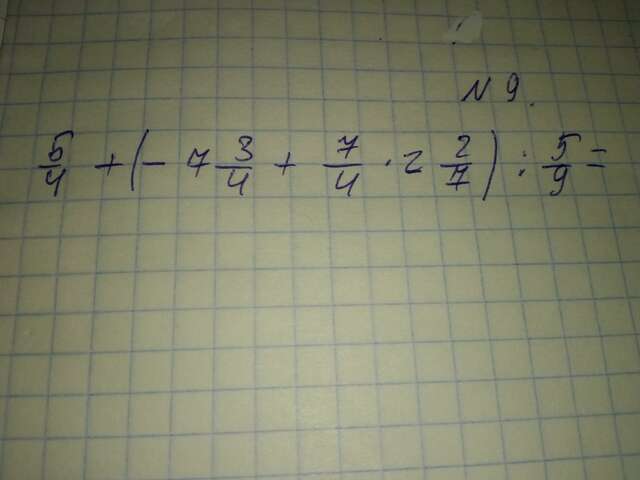 N 9.
5/4 + (- 7 3/4 + 7/4 · 2 2/7) : 5/9 =